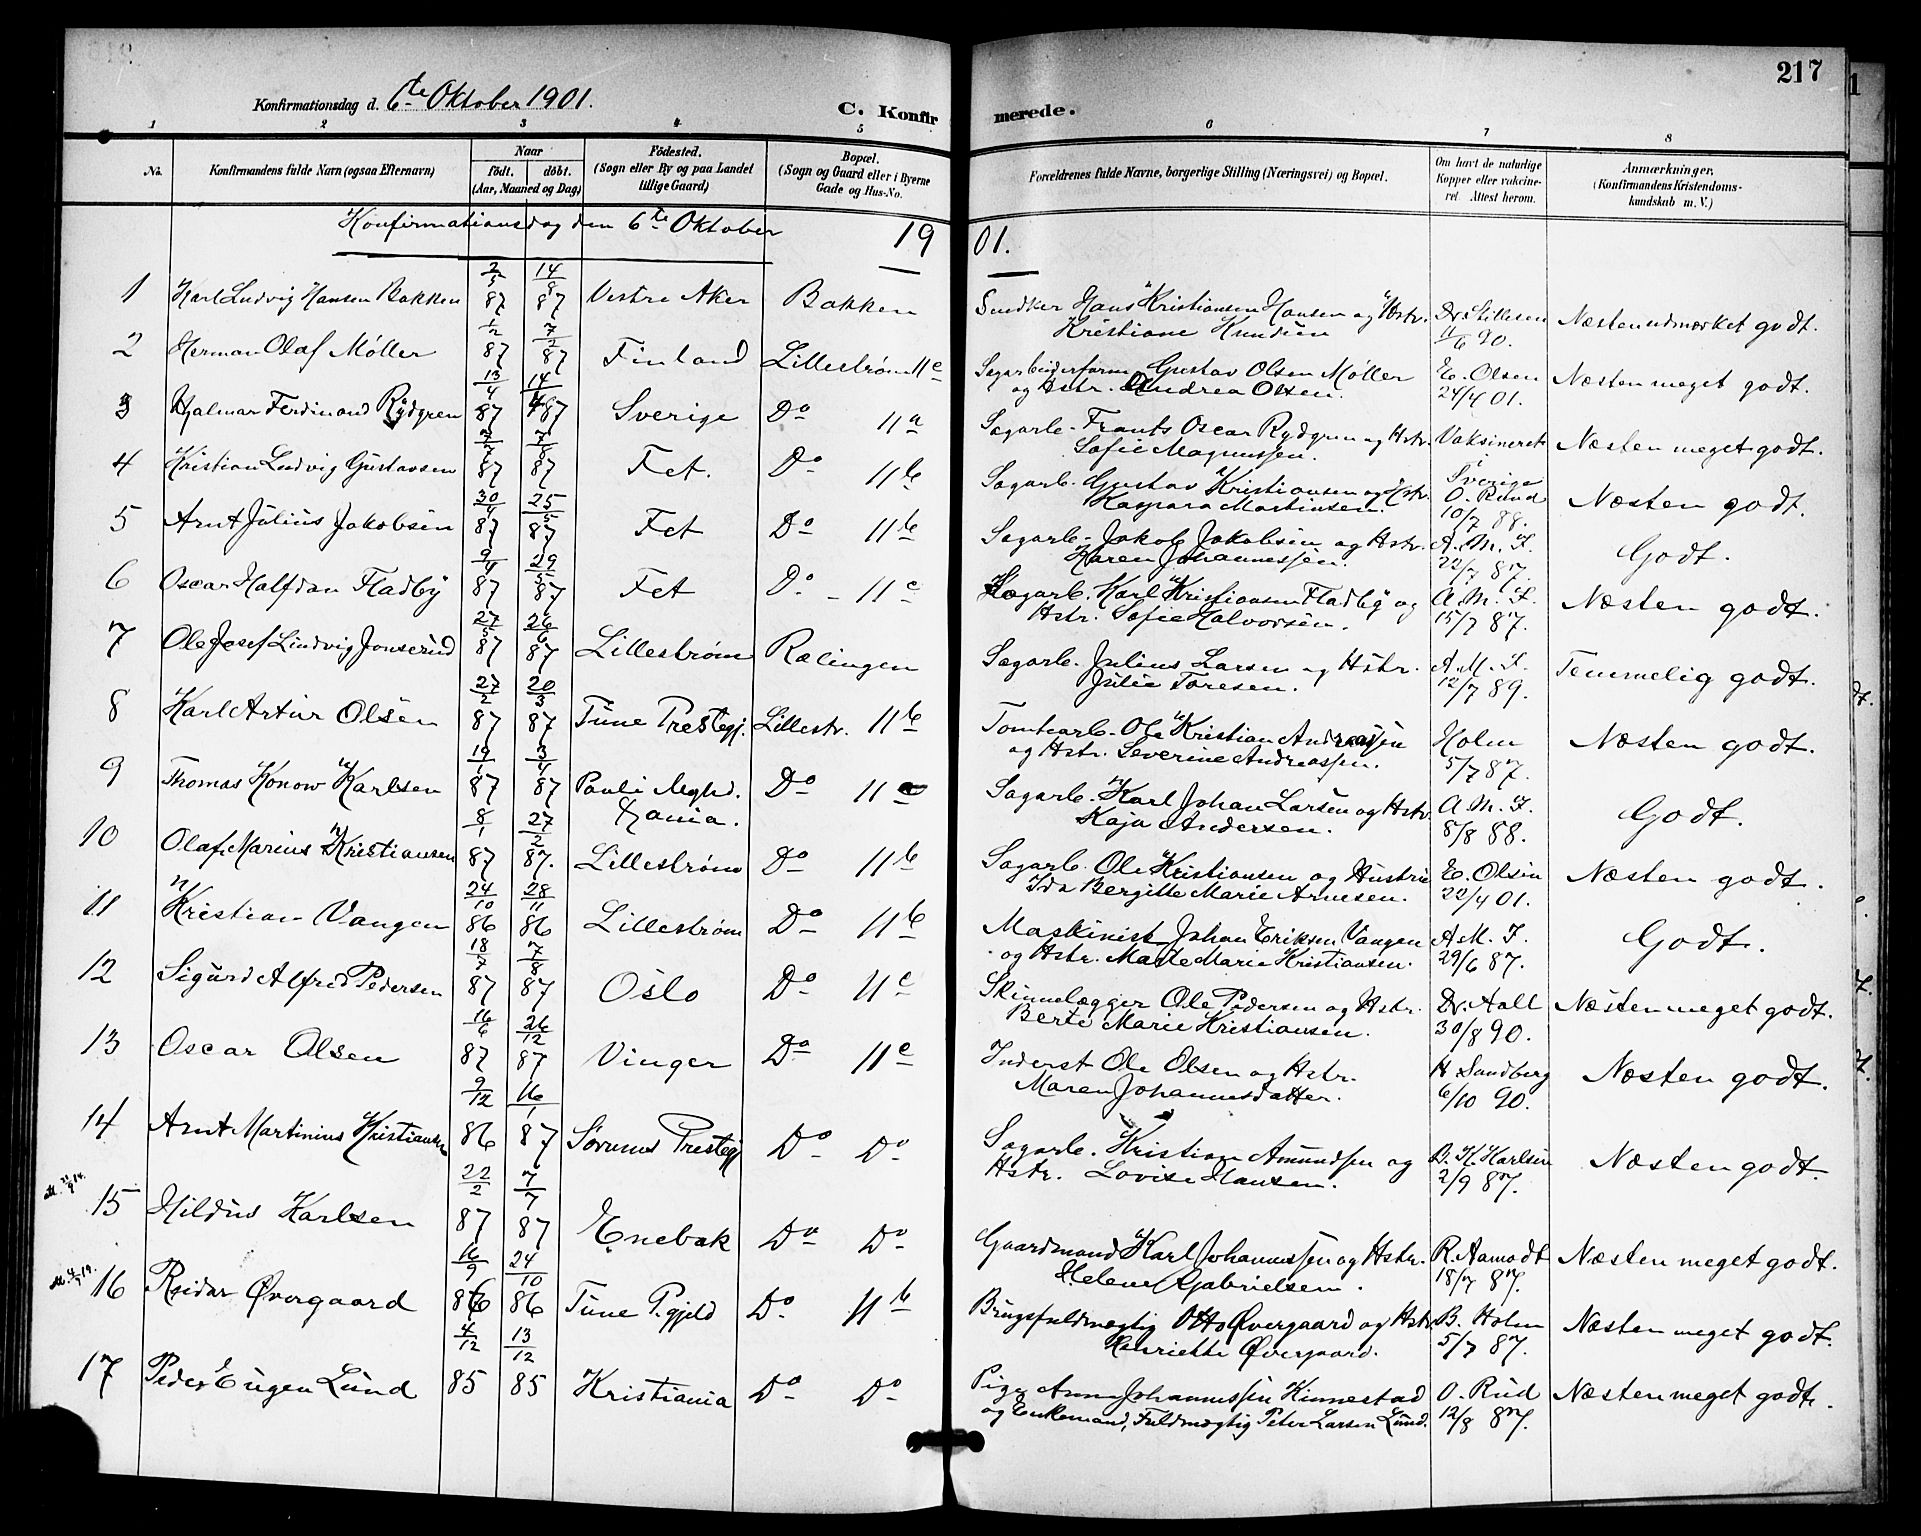 217
Konfirmationsdag d. 6te Oktober 1901.
C. Konfirmerede.
1 2 3 4 5 6 7 8
No.
Konfirmandens fulde Navn (ogsaa Efternavn)
Naar
født. døbt.
(Aar, Maaned og Dag)
Fødested.
(Sogn eller By og paa Landet
tillige Gaard)
Bopæl.
(Sogn og Gaard eller i Byerne
Gade og Hus-No.
Forældrenes fulde Navne, borgerlige Stilling (Næringsvei) og Bopæl.
Om havt de naturlige
Kopper eller vakcine-
ret. Attest herom.
Anmærkninger.
(Konfirmandens Kristendoms-
kundskab m. V.)
Konfirmationsdag den 6te Oktober 1901.
1 Karl Ludvig Hansen Bakken 2/5 87 14/8 87 Vestre Aker Bakken Snedker Hans Kristiansen Hansen og Hstr. Dr. Stillesen Næsten udmærket godt.
Kristiane Knudsen 11/6 90.
2 Herman Olaf Møller 1/2 87 7/2 87 Finland Lillestrøm 11c Sagarbeiderform. Gustav Olsen Møller E. Olsen Næsten meget godt.
og Hstr. Andrea Olsen. 24/4 01.
3 Hjalmar Ferdinand Rydgren 13/4 87 14/4 87 Sverige Do 11a Sagarb. Frants Oscar Rydgren og Hstr. Vaksineret Næsten meget godt.
Sofie Magnussen. Sverige
4 Kristian Ludvig Gustavsen 7/7 87 7/8 87 Fet. Do 11b Sagarb. Gustav Kristiansen og Hstr. O. Rund Næsten godt.
Kaspara Martinsen. 10/7 88.
5 Arnt Julius Jakobsen 30/4 87 25/5 87 Fet Do 11b Sagarb. Jakob Jakobsen og Hstr. A. M. F. Godt.
Karen Johannessen. 22/7 87.
6 Oscar Halfdan Fladby 9/4 87 29/5 87 Fet Do - 11c Sagarb. Karl Kristiansen Fladby og A. M. F. Næsten godt.
Hstr. Sofie Halvorsen. 15/7 87.
7 Ole Josef Ludvig Jonserud 27/5 87 26/6 87 Lillestrøm Rælingen Sagarb. Julius Larsen og Hstr. A. M. F. Temmelig godt.
Julie Toresen. 12/7 89.
8 Karl Artur Olsen 27/2 87 20/3 87 Tune Prestegj. Lillestr. 11b Tomtearb. Ole Kristian Andreassen Holm Næsten godt.
og Hstr. Severine Andreassen. 5/7 87.
9 Thomas Konow Karlsen 19/1 87 3/4 87 Pauli Mghd. Do 11a Sagarb. Karl Johan Larsen og Hstr. A. M. F. Godt.
Xania. Kaja Andersen. 8/8 88.
10 Olaf Marius Kristiansen 8/1 87 27/2 87. Lillestrøm Do 11b Sagarb. Ole Kristiansen og Hustru E. Olsen Næsten godt.
Ida Bergitte Marie Arnesen. 22/4 01.
11 Kristian Vangen 24/10 86 28/11 86 Lillestrøm Do 11b Maskinist Johan Eriksen Vangen A. M. F. Godt.
og Hstr. Marte Marie Kristiansen. 29/6 87.
12 Sigurd Alfred Pedersen 18/7 87 7/8 87 Oslo Do 11c Skinnelægger Ole Pedersen og Hstr. Dr. Aall Næsten meget godt.
Berte Marie Kristiansen. 30/8 90.
13 Oscar Olsen 16/6 87 26/12 87 Vinger Do 11c Inderst Ole Olsen og Hstr. H Sandberg Næsten godt.
Maren Johannesdatter. 6/10 90.
14 Arnt Martinius Kristiansen 9/12 86 16/1 87 Sørums Prestegj Do Do Sagarb. Kristian Amundsen og B. K. Karlsen Næsten godt.
Hstr. Lovise Hansen. 2/9 87.
15 Hildus Karlsen 22/2 87 7/7 87 Enebak Do Do Gaardmand Karl Johannessen og Hstr. R. Aamodt Næsten meget godt.
Helene Gabrielsen. 18/7 87.
16 Reidar Øvergaard 16/9 86 24/10 86 Tune P.gjeld Do 11b Brugsfuldmægtig Otto Øvergaard og Hstr. B. Holm Næsten meget godt.
Henriette Øvergaard. 5/7 87.
17 Peder Eugen Lund 4/12 85 13/12 85 Kristiania Do Do Pige Anna Johannessen Kinnestad O. Rud Næsten meget godt.
og Enkemand, Fuldmægtig Peter Larsen Lund. 12/8 87.